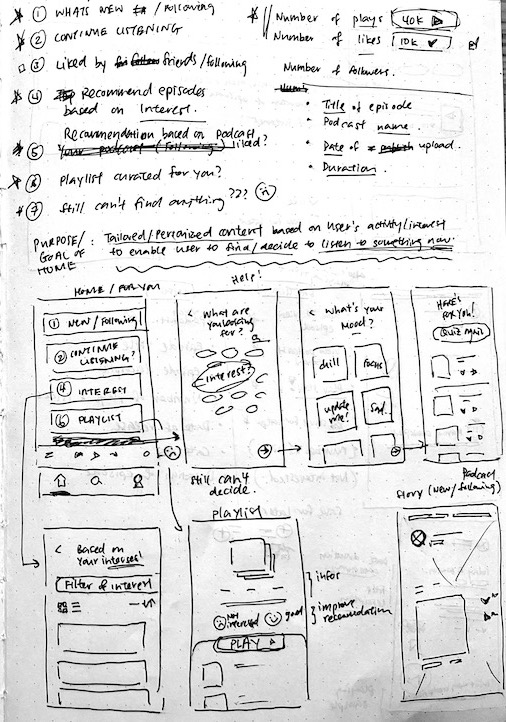 ① WHATS NEW / Following
② CONTINUE LISTENING
③ Liked by friends / following
④ Recommend episodes
based on Interest.
Recommendation based on podcast
⑤ your podcast (following) liked?
⑥ Playlist curated for you?
⑦ Still can't find anything???
Number of plays 40K
Number of likes 10K
Number of followers.
• Title of episode
• Podcast name.
• Date of publish upload.
• Duration.
PURPOSE/
GOAL OF
HOME
: Tailored/Personized content based on user's activity/interest
to enable user to find/decide to listen to something now.
HOME / FOR YOU
① NEW / Following
② CONTINUE
LISTENING?
④ INTEREST
⑥ PLAYLIST
Help!
< What are
you looking
for?
interest?
Still can't
decide.
< What's your
Mood?
chill
focus
update
me!
Sad.
HERE'S
FOR YOU!
Quiz again
< Based on
your interests!
Filter of interest
Playlist
} infos
Not
interested
good
} improve
recommendation
PLAY
Podcast
Story (New/following)